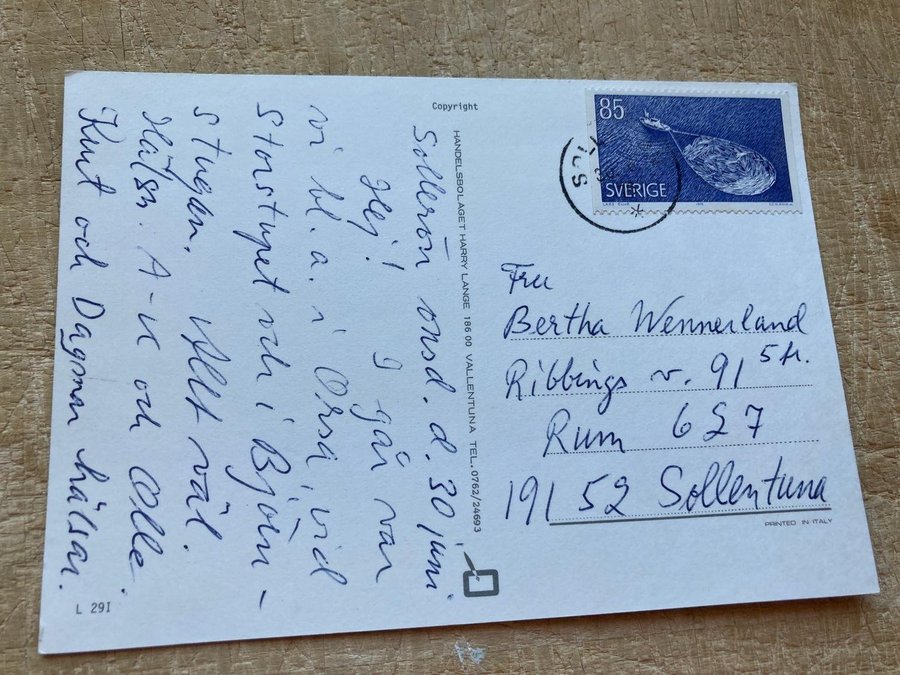 Sollerön onsd. d. 30 juni.
Hej! I går var
vi bl. a. i Orsa vid
Storstupet och i Björn-
stugan. Allt väl.
Hälsn. A-K och Olle.
Kurt och Dagmar hälsar.
L 29I
Copyright
HANDELSBOLAGET HARRY LANGE 186 00 VALLENTUNA TEL. 0762/24693
85
SVERIGE
Fru
Bertha Wennerland
Ribbings v. 91 5 tr.
Rum 627
191 52 Sollentuna
PRINTED IN ITALY